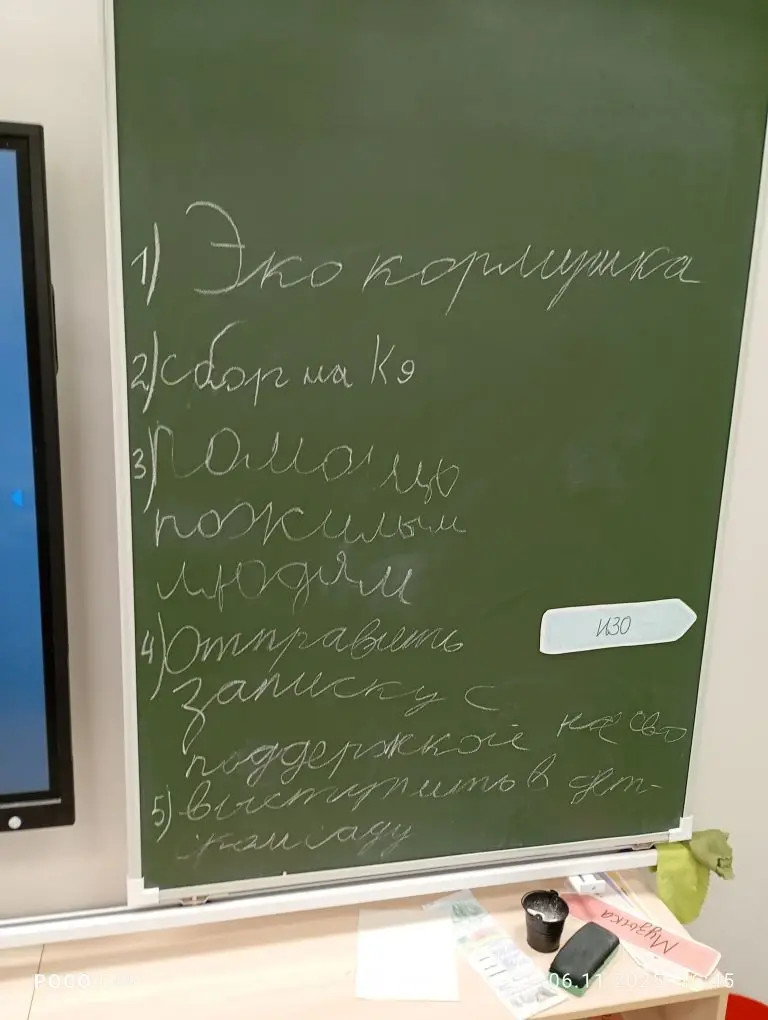 1) Эко кормушка
2) сбор на Кя
3) Помощь
пожилым
людям
4) Отправить
записку с
поддержкой на сво
5) выступить в дет-
ком саду
ИЗО
Музыка
POCO
06.11